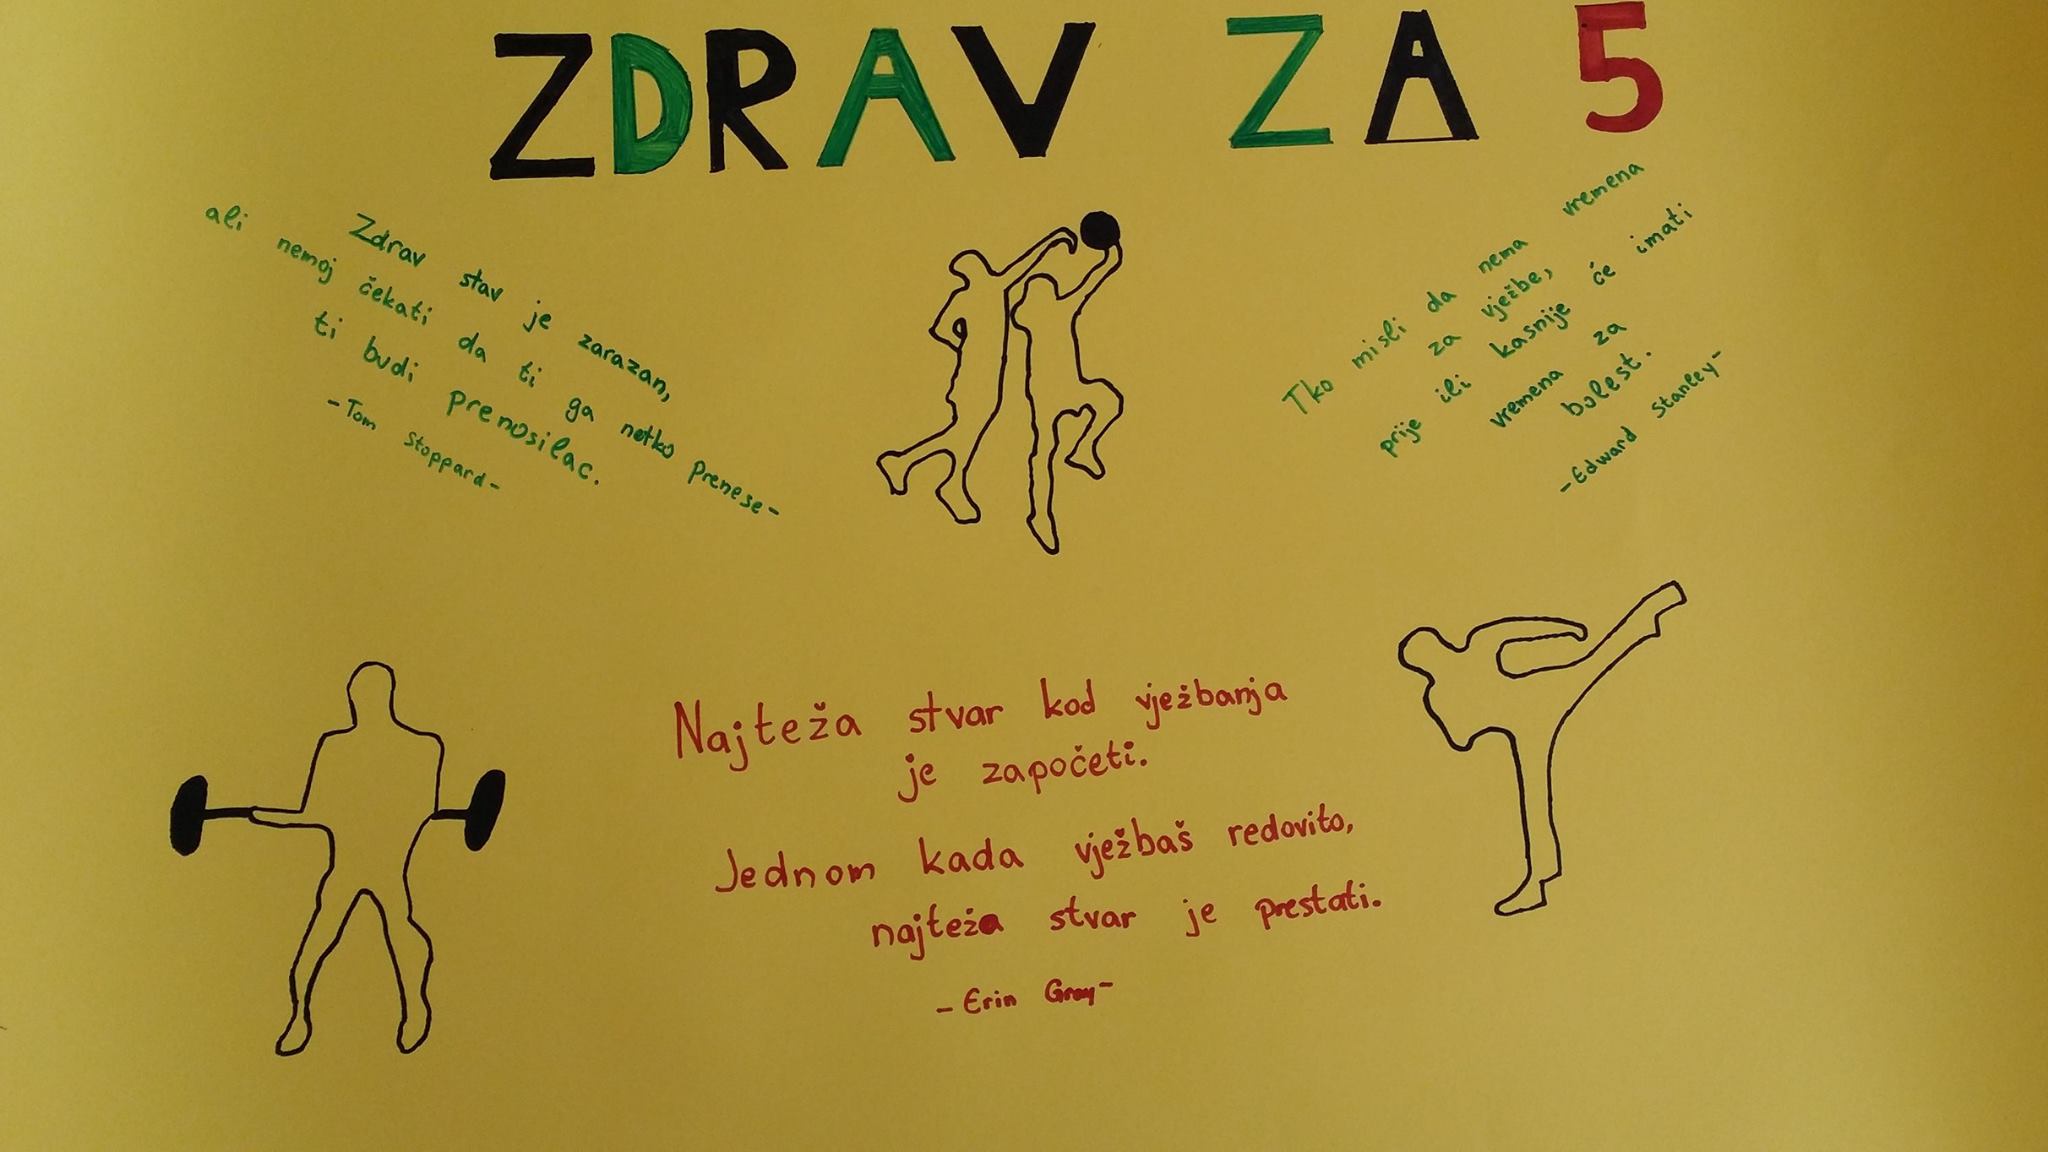 ZDRAV ZA 5
Zdrav stav je zarazan,
ali nemoj čekati da ti ga netko prenese-
ti budi prenosilac.
-Tom Stoppard-
Tko misli da nema vremena
za vježbe,
prije ili kasnije će imati
vremena za
bolest.
-Edward Stanley-
Najteža stvar kod vježbanja
je započeti.
Jednom kada vježbaš redovito,
najteža stvar je prestati.
-Erin Gray-